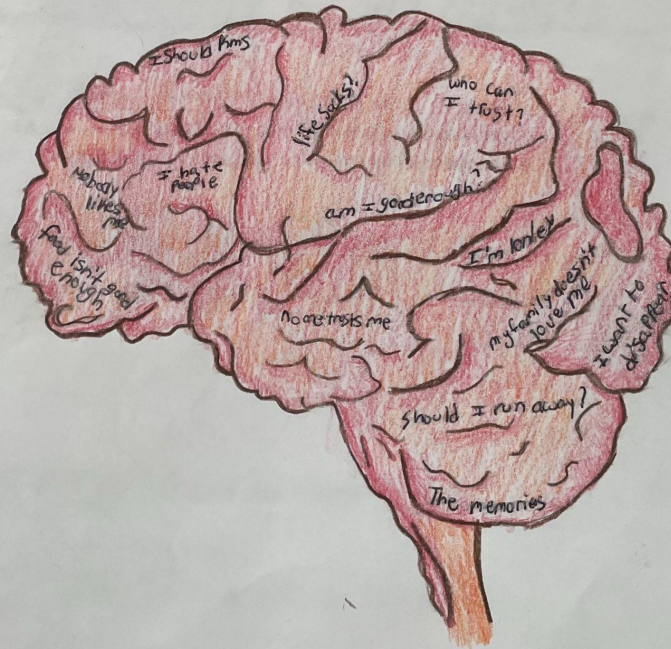 I should kms
life sucks?
who can
I trust?
Nobody
likes
me
I hate
people
am I good enough??
food isn't good
enough
I'm lonley
no one trusts me
my family doesn't
love me
I want to
disappear
should I run away?
The memories